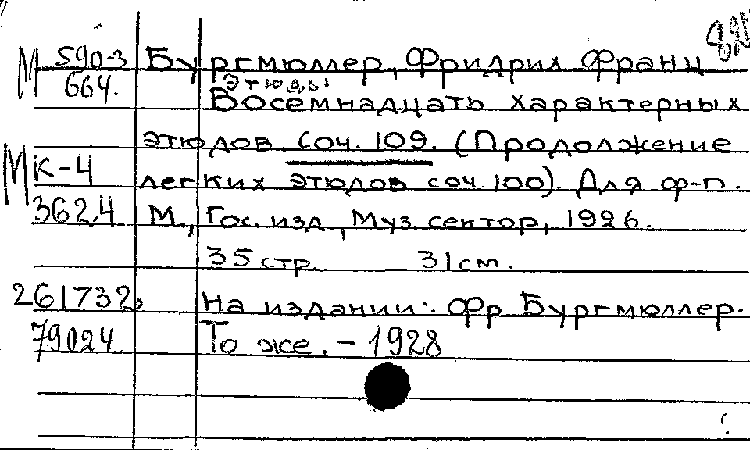 М 590-3 Бургмюллер, Фридрих Франц
664. Этюды
Восемнадцать характерных
этюдов соч. 109. (Продолжение
М К-4 легких этюдов соч. 100). Для ф-п.
3624 М., Гос. изд., Муз. сектор, 1926.
35 стр. 31 см.
261732, На издании: Фр Бургмюллер.
79024 То же. - 1928